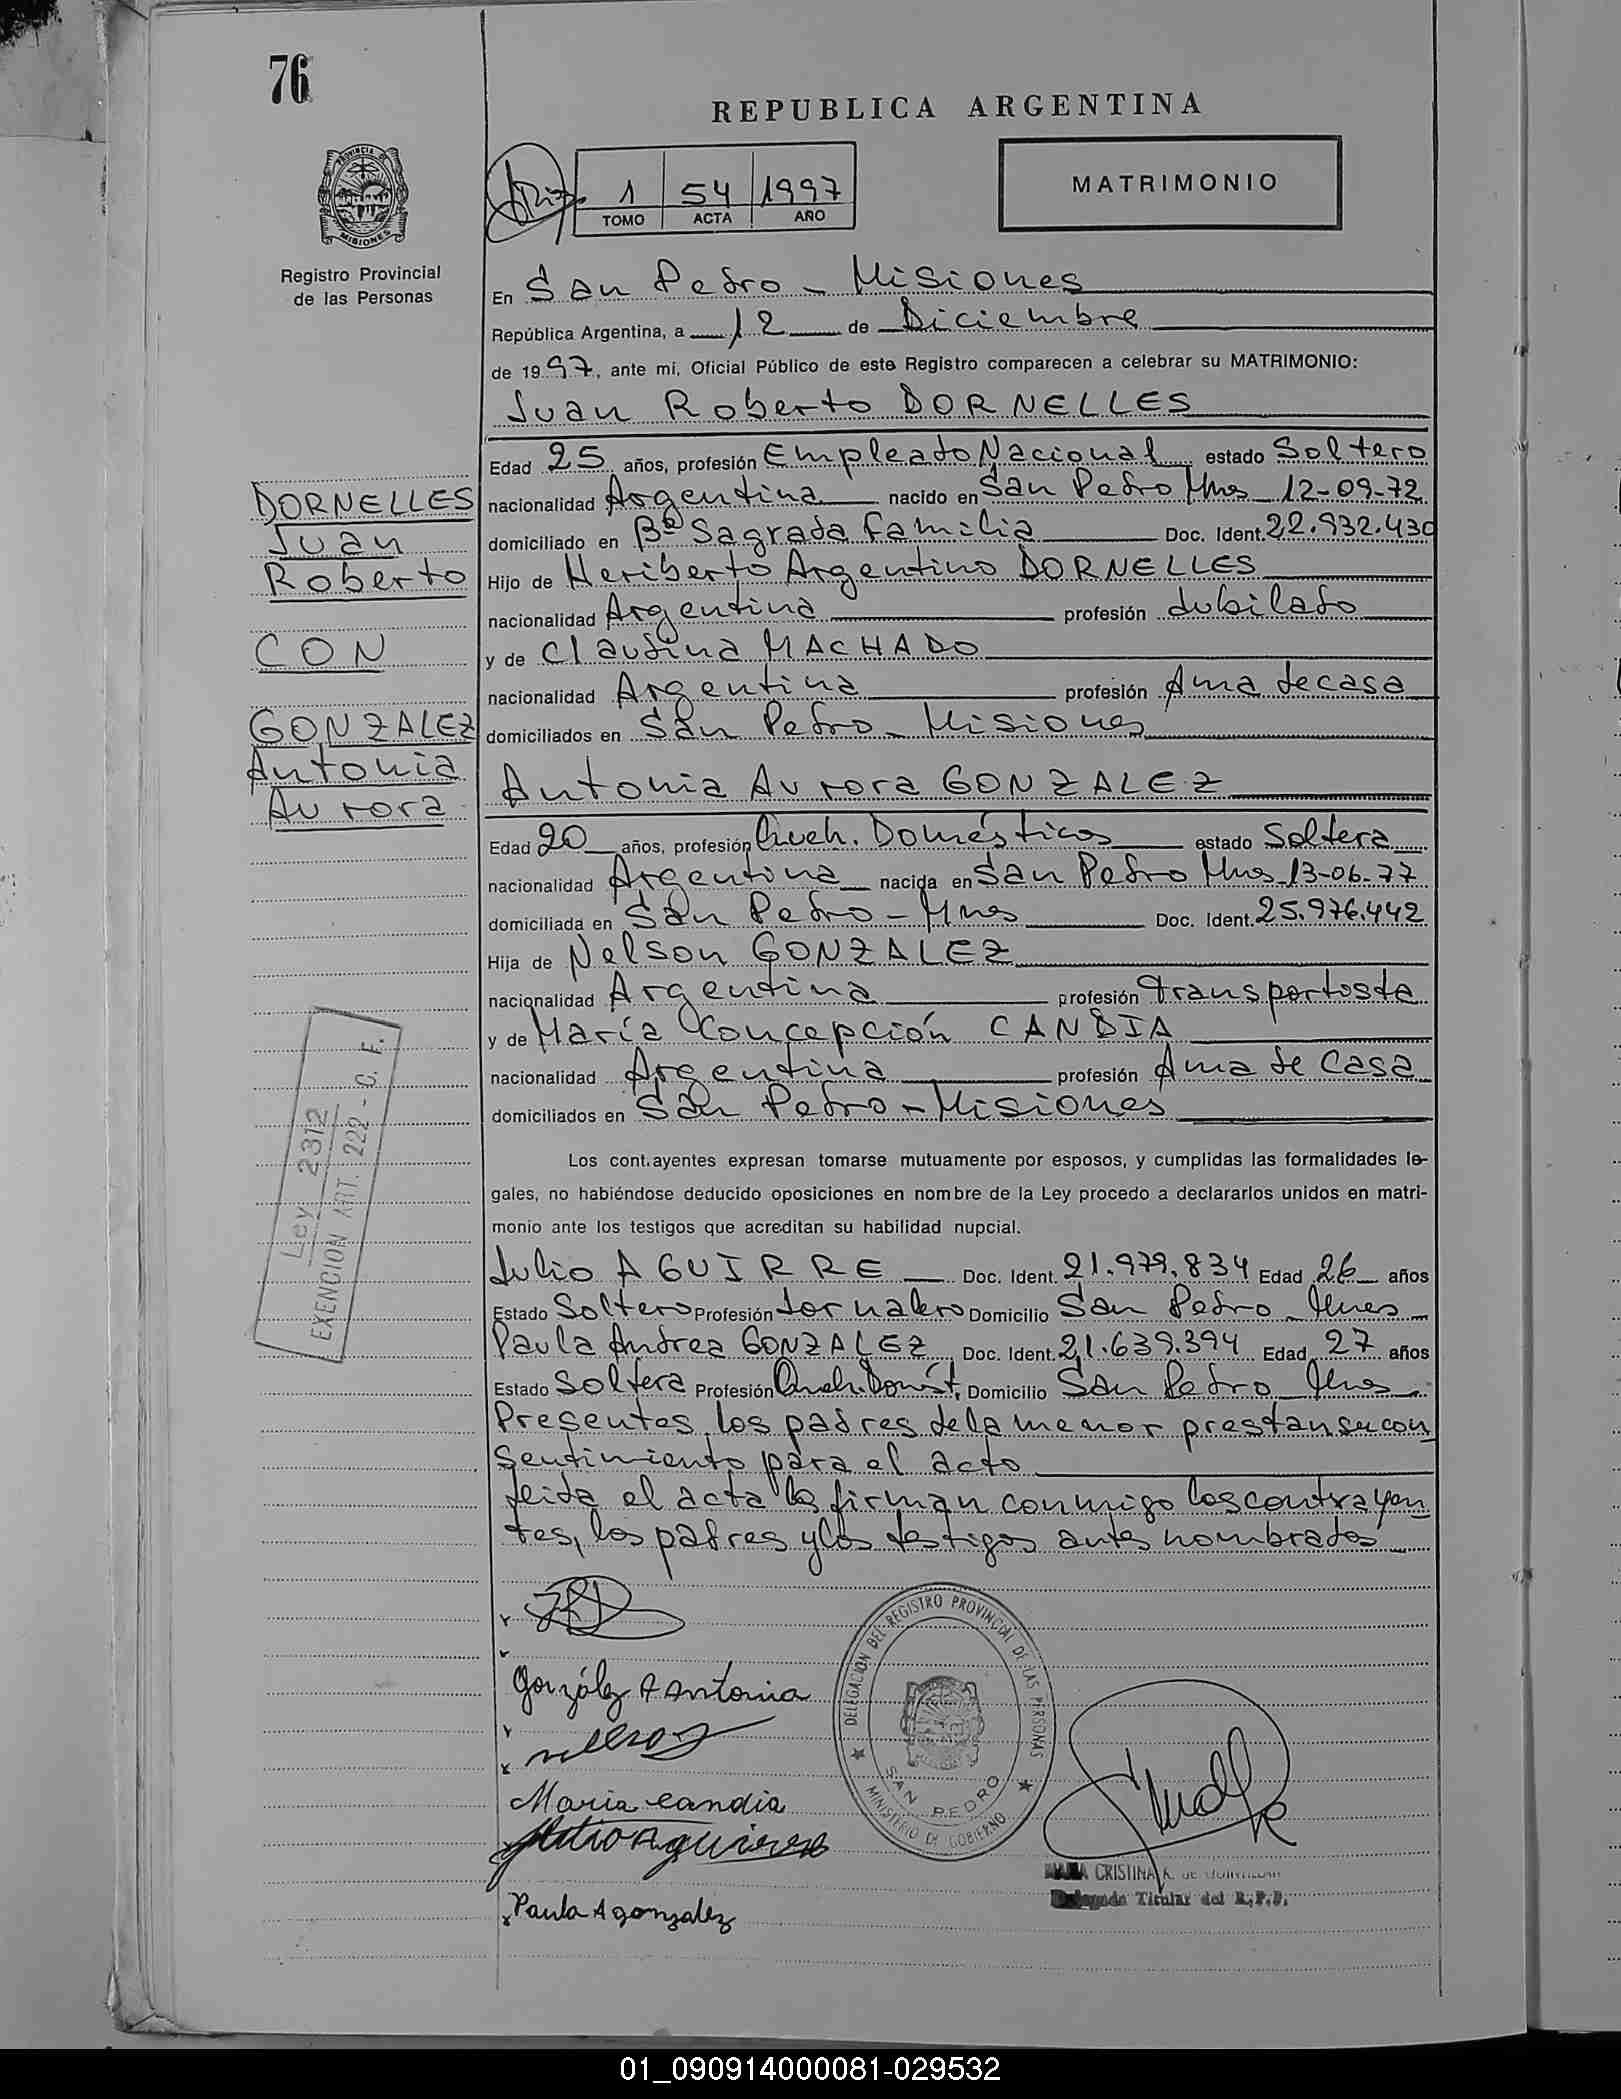 76
REPUBLICA ARGENTINA
PROVINCIA DE
MISIONES
Registro Provincial
de las Personas
1 54 1997
TOMO ACTA AÑO
MATRIMONIO
En San Pedro - Misiones
República Argentina, a 12 de Diciembre
de 1997, ante mi, Oficial Público de este Registro comparecen a celebrar su MATRIMONIO:
Juan Roberto DORNELLES
Edad 25 años, profesión Empleado Nacional estado Soltero
nacionalidad Argentina nacido en San Pedro Mnes 12-09-72
domiciliado en Bº Sagrada Familia Doc. Ident. 22.932.430
Hijo de Heriberto Argentino DORNELLES
nacionalidad Argentina profesión Jubilado
y de Claudina MACHADO
nacionalidad Argentina profesión Ama de casa
domiciliados en San Pedro - Misiones
DORNELLES
Juan
Roberto
CON
GONZALEZ
Antonia
Aurora
Antonia Aurora GONZALEZ
Edad 20 años, profesión Queh. Domésticos estado Soltera
nacionalidad Argentina nacida en San Pedro Mnes 13-06-77
domiciliada en San Pedro - Mnes Doc. Ident. 25.976.442
Hija de Nelson GONZALEZ
nacionalidad Argentina profesión transportista
y de María Concepción CANDIA
nacionalidad Argentina profesión Ama de Casa
domiciliados en San Pedro - Misiones
Ley 2312
EXENCION ART. 222 - C. F.
Los cont.ayentes expresan tomarse mutuamente por esposos, y cumplidas las formalidades le-
gales, no habiéndose deducido oposiciones en nombre de la Ley procedo a declararlos unidos en matri-
monio ante los testigos que acreditan su habilidad nupcial.
Julio AGUIRRE Doc. Ident. 21.979.834 Edad 26 años
Estado Soltero Profesión Jornalero Domicilio San Pedro Mnes
Paula Andrea GONZALEZ Doc. Ident. 21.639.394 Edad 27 años
Estado Soltera Profesión Queh. Domést. Domicilio San Pedro Mnes
Presentes los padres de la menor prestan su con
sentimiento para el acto
leida el acta la firman conmigo los contrayen
tes, los padres y los testigos antes nombrados
González A Antonia
Maria Candia
Julio Aguirre
Paula A gonzalez
DELEGACION DEL REGISTRO PROVINCIAL DE LAS PERSONAS
SAN PEDRO
MINISTERIO DE GOBIERNO
MARIA CRISTINA K. DE
Delegada Titular del R.P.P.
01_090914000081-029532